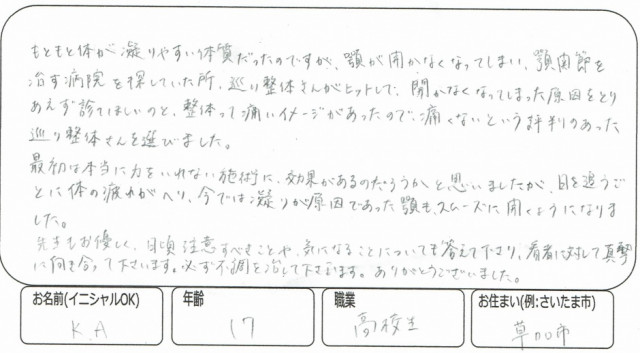 もともと体が凝りやすい体質だったのですが、顎が開かなくなってしまい、顎関節を
治す病院を探していた所、巡り整体さんがヒットして、開かなくなってしまった原因をとり
あえず診てほしいのと、整体って痛いイメージがあったので、痛くないという評判のあった
巡り整体さんを選びました。
最初は本当に力をいれない施術に、効果があるのだろうかと思いましたが、日を追うご
とに体の疲れがへり、今では凝りが原因であった顎も、スムーズに開くようになりま
した。
先生もお優しく、日頃注意すべきことや、気になることについても答えて下さり、患者に対して真摯
に向き合って下さいます。必ず不調を治して下さいます。ありがとうございました。
お名前(イニシャルOK) 年齢 職業 お住まい(例:さいたま市)
K.A 17 高校生 草加市